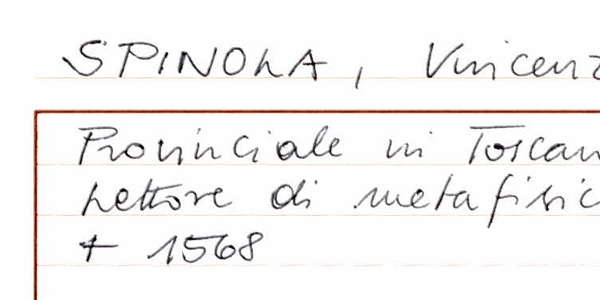 SPINOLA, Vincenz
Provinciale in Toscan
Lettore di metafisic
+ 1568